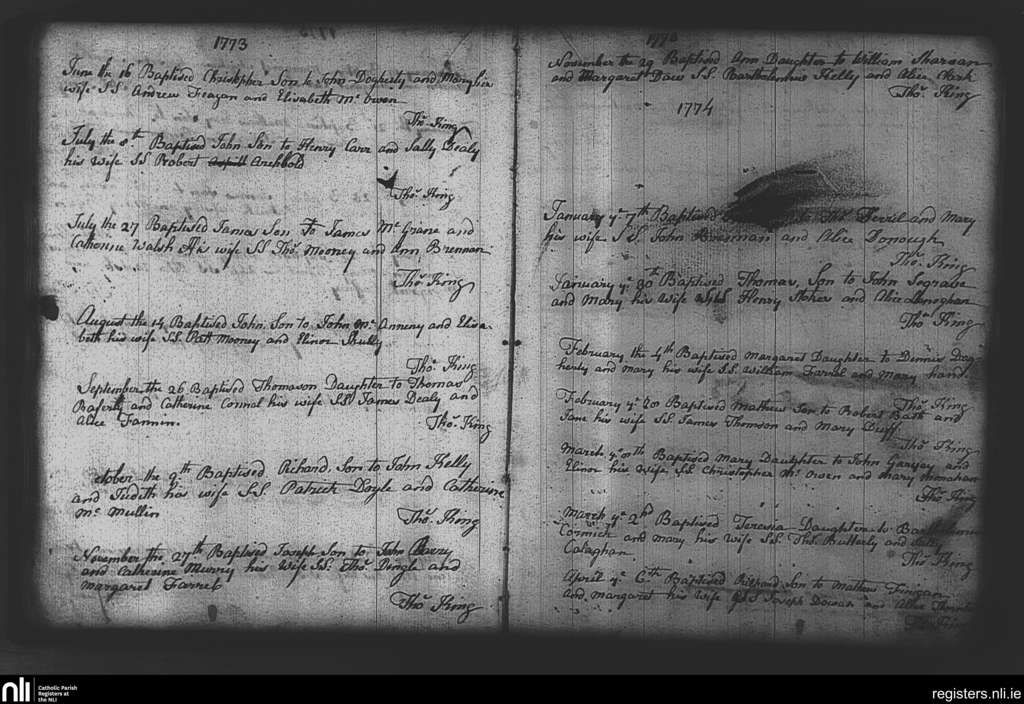 1773
June the 16 Baptised Christopher Son to John Dogherty and Mary his
wife SS. Andrew Feagan and Elisabeth Mc Owen
Thos. King
July the 8th Baptised John Son to Henry Carr and Sally Dealy
his wife SS Robert Archbold
Thos. King
July the 27 Baptised James Son To James Mc Grane and
Catherine Walsh His wife SS Thos. Mooney and Ann Brennan
Thos. King
August the 14 Baptised John Son to John Mc Anneny and Elisa-
beth his wife SS. Patt Mooney and Elinor Skully
Thos. King
September the 26 Baptised Thomason Daughter to Thomas
Raferty and Catherine Connal his wife SS James Dealy and
Alice Fannin.
Thos. King
October the 2th Baptised Richard Son to John Kelly
and Judeth his wife S.S. Patrick Doyle and Catherine
Mc Mullin
Thos. King
November the 27th Baptised Joseph Son to John
and Catherine Murry his wife SS. Thos. Pringle and
Margaret Farrel
Thos. King
1773
November the 29 Baptised Ann Daughter to William Sharsan
and Margaret Daws S.S. Bartholomew Kelly and Alice Clark
Thos. King
1774
January ye 7th Baptised to Thos. Ferril and Mary
his wife S.S. John Bresnan and Alice Donough
Thos. King
January ye 30th Baptised Thomas, Son to John Segrave
and Mary his wife SS Henry Stokes and Alice Lenoghan
Thos. King
February the 4th Baptised Margaret Daughter to Dinnis Dog-
herty and Mary his wife S.S. William Farrel and Mary hand
Thos. King
February ye 20 Baptised Mathew Son to Robert Bath and
Jane his wife SS. James Thomson and Mary Duff
Thos. King
March ye Baptised Mary Daughter to John and
Elinor his wife SS Christopher Mc Owen and Mary Monahan
Thos. King
March ye 2nd Baptised Teresia Daughter to
Cormick and Mary his wife S.S. Thos. Butterly and Sally
Calaghan
Thos. King
April ye 6th Baptised Richard Son to Mathew Finigan
and Margaret his wife SS Joseph Dowan and Alice
Thos. King
nli
Catholic Parish
Registers at
the NLI
registers.nli.ie